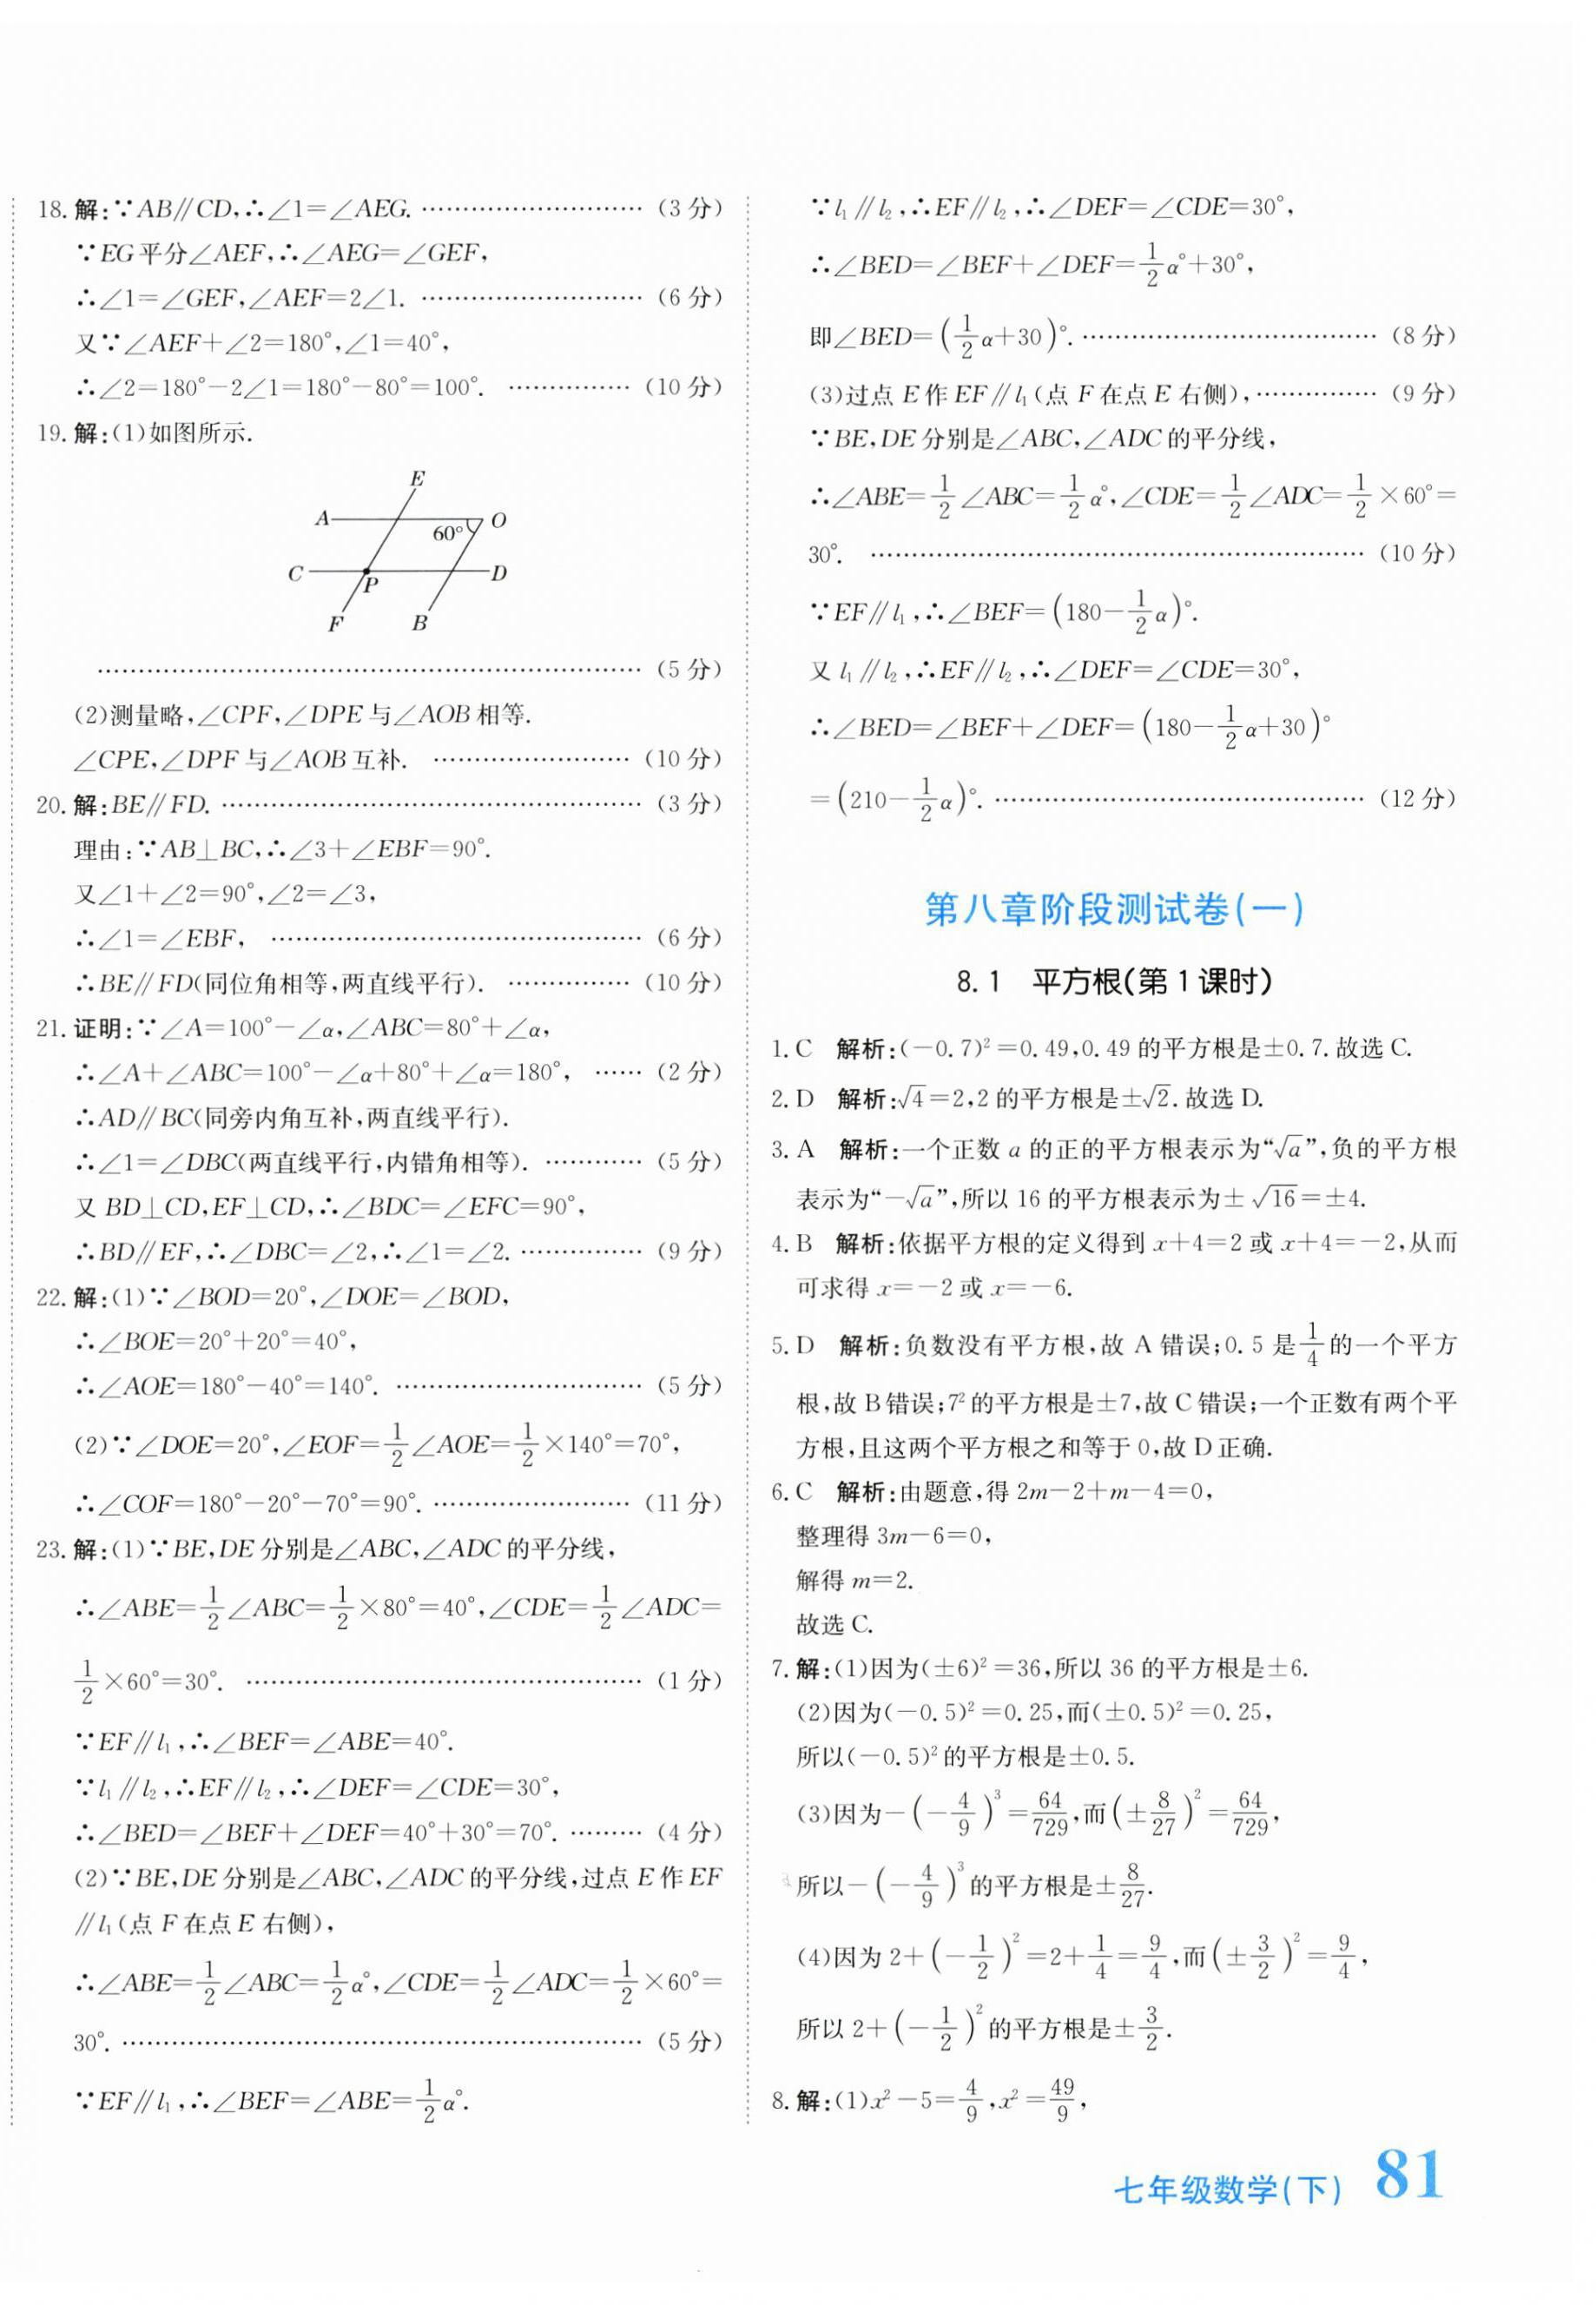 18. 解:∵AB∥CD,∴∠1=∠AEG. ………………………(3分)
∵EG平分∠AEF,∴∠AEG=∠GEF,
∴∠1=∠GEF,∠AEF=2∠1. ………………………(6分)
又∵∠AEF+∠2=180°,∠1=40°,
∴∠2=180°-2∠1=180°-80°=100°. ……………(10分)
19. 解:(1)如图所示.
E
A
60°
O
C
P
D
F
B
……………………………………………………………(5分)
(2)测量略,∠CPF,∠DPE与∠AOB相等.
∠CPE,∠DPF与∠AOB互补. ……………………(10分)
20. 解:BE∥FD. ……………………………………………(3分)
理由:∵AB⊥BC,∴∠3+∠EBF=90°.
又∠1+∠2=90°,∠2=∠3,
∴∠1=∠EBF, ………………………………………(6分)
∴BE∥FD(同位角相等,两直线平行). ………………(10分)
21. 证明:∵∠A=100°-∠α,∠ABC=80°+∠α,
∴∠A+∠ABC=100°-∠α+80°+∠α=180°, ……(2分)
∴AD∥BC(同旁内角互补,两直线平行).
∴∠1=∠DBC(两直线平行,内错角相等). …………(5分)
又BD⊥CD,EF⊥CD,∴∠BDC=∠EFC=90°,
∴BD∥EF,∴∠DBC=∠2,∴∠1=∠2. ……………(9分)
22. 解:(1)∵∠BOD=20°,∠DOE=∠BOD,
∴∠BOE=20°+20°=40°,
∴∠AOE=180°-40°=140°. …………………………(5分)
(2)∵∠DOE=20°,∠EOF=1/2∠AOE=1/2×140°=70°,
∴∠COF=180°-20°-70°=90°. ……………………(11分)
23. 解:(1)∵BE,DE分别是∠ABC,∠ADC的平分线,
∴∠ABE=1/2∠ABC=1/2×80°=40°,∠CDE=1/2∠ADC=
1/2×60°=30°. …………………………………………(1分)
∵EF∥l₁,∴∠BEF=∠ABE=40°.
∵l₁∥l₂,∴EF∥l₂,∴∠DEF=∠CDE=30°,
∴∠BED=∠BEF+∠DEF=40°+30°=70°. ………(4分)
(2)∵BE,DE分别是∠ABC,∠ADC的平分线,过点E作EF
∥l₁(点F在点E右侧),
∴∠ABE=1/2∠ABC=1/2α°,∠CDE=1/2∠ADC=1/2×60°=
30°. ………………………………………………………(5分)
∵EF∥l₁,∴∠BEF=∠ABE=1/2α°.
∵l₁∥l₂,∴EF∥l₂,∴∠DEF=∠CDE=30°,
∴∠BED=∠BEF+∠DEF=1/2α°+30°,
即∠BED=(1/2α+30)°. ………………………………(8分)
(3)过点E作EF∥l₁(点F在点E右侧), ……………(9分)
∵BE,DE分别是∠ABC,∠ADC的平分线,
∴∠ABE=1/2∠ABC=1/2α°,∠CDE=1/2∠ADC=1/2×60°=
30°. ……………………………………………………(10分)
∵EF∥l₁,∴∠BEF=(180-1/2α)°.
又l₁∥l₂,∴EF∥l₂,∴∠DEF=∠CDE=30°,
∴∠BED=∠BEF+∠DEF=(180-1/2α+30)°
=(210-1/2α)°. ………………………………………(12分)
第八章阶段测试卷(一)
8.1 平方根(第1课时)
1. C 解析:(-0.7)²=0.49,0.49的平方根是±0.7.故选C.
2. D 解析:√4=2,2的平方根是±√2.故选D.
3. A 解析:一个正数a的正的平方根表示为“√a”,负的平方根
表示为“-√a”,所以16的平方根表示为±√16=±4.
4. B 解析:依据平方根的定义得到x+4=2或x+4=-2,从而
可求得x=-2或x=-6.
5. D 解析:负数没有平方根,故A错误;0.5是1/4的一个平方
根,故B错误;7²的平方根是±7,故C错误;一个正数有两个平
方根,且这两个平方根之和等于0,故D正确.
6. C 解析:由题意,得2m-2+m-4=0,
整理得3m-6=0,
解得m=2.
故选C.
7. 解:(1)因为(±6)²=36,所以36的平方根是±6.
(2)因为(-0.5)²=0.25,而(±0.5)²=0.25,
所以(-0.5)²的平方根是±0.5.
(3)因为-(-4/9)³=64/729,而(±8/27)²=64/729,
所以-(-4/9)³的平方根是±8/27.
(4)因为2+(-1/2)²=2+1/4=9/4,而(±3/2)²=9/4,
所以2+(-1/2)²的平方根是±3/2.
8. 解:(1)x²-5=4/9,x²=49/9,
七年级数学(下) 81